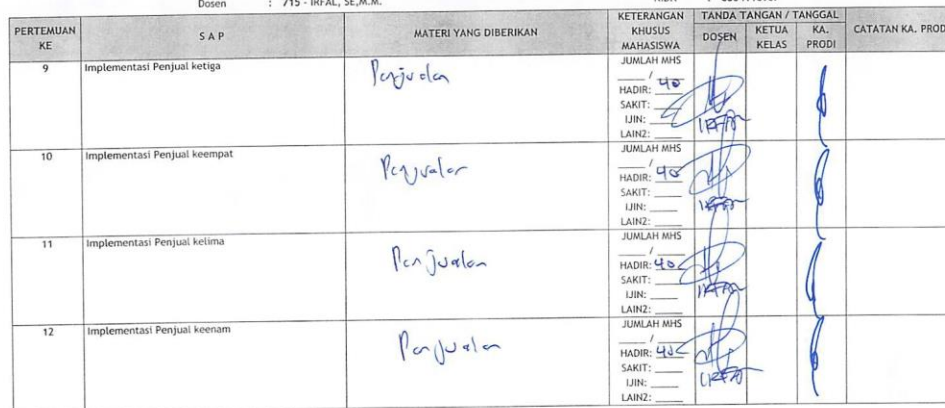 Dosen : 715 - IRFAL, SE,M.M.
PERTEMUAN KE
S A P
MATERI YANG DIBERIKAN
KETERANGAN KHUSUS MAHASISWA
TANDA TANGAN / TANGGAL
DOSEN
KETUA KELAS
KA. PRODI
CATATAN KA. PRODI
9
Implementasi Penjual ketiga
Penjualan
JUMLAH MHS
/
HADIR: 40
SAKIT:
IJIN:
LAIN2:
IRFAL
10
Implementasi Penjual keempat
Penjualan
JUMLAH MHS
/
HADIR: 40
SAKIT:
IJIN:
LAIN2:
IRFAL
11
Implementasi Penjual kelima
Penjualan
JUMLAH MHS
/
HADIR: 40
SAKIT:
IJIN:
LAIN2:
IRFAL
12
Implementasi Penjual keenam
Penjualan
JUMLAH MHS
/
HADIR: 40
SAKIT:
IJIN:
LAIN2:
IRFAL